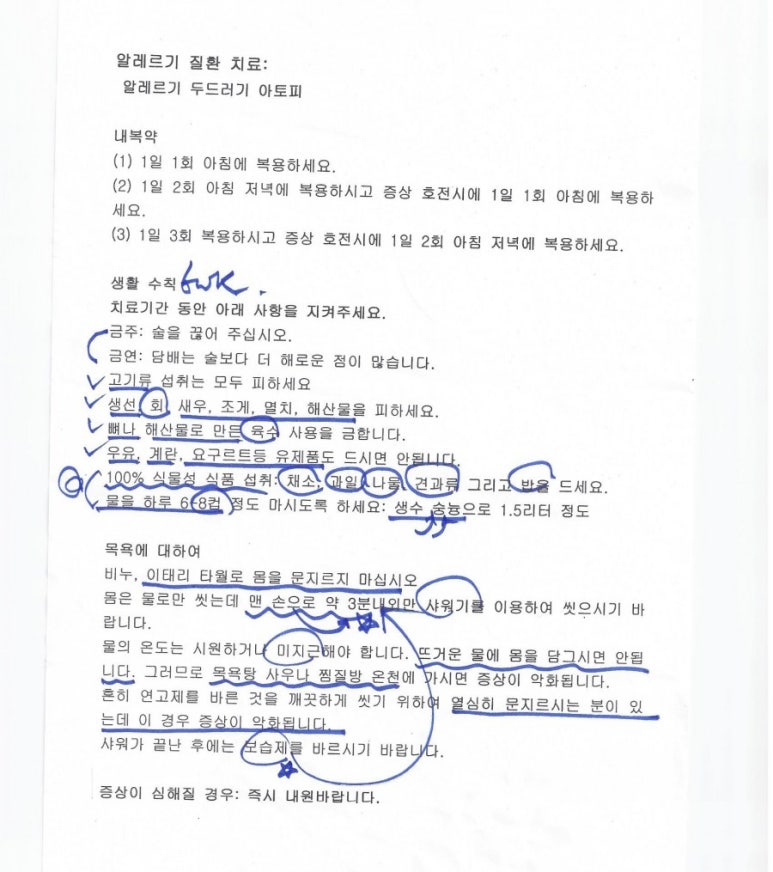 알레르기 질환 치료:
알레르기 두드러기 아토피
내복약
(1) 1일 1회 아침에 복용하세요.
(2) 1일 2회 아침 저녁에 복용하시고 증상 호전시에 1일 1회 아침에 복용하
세요.
(3) 1일 3회 복용하시고 증상 호전시에 1일 2회 아침 저녁에 복용하세요.
생활 수칙
치료기간 동안 아래 사항을 지켜주세요.
금주: 술을 끊어 주십시오.
금연: 담배는 술보다 더 해로운 점이 많습니다.
고기류 섭취는 모두 피하세요
생선, 회, 새우, 조게, 멸치, 해산물을 피하세요.
뼈나 해산물로 만든 육수 사용을 금합니다.
우유, 계란, 요구르트등 유제품도 드시면 안됩니다.
100% 식물성 식품 섭취: 채소, 과일, 나물, 견과류 그리고 밥을 드세요.
물을 하루 6-8컵 정도 마시도록 하세요: 생수 숭늉으로 1.5리터 정도
목욕에 대하여
비누, 이태리 타월로 몸을 문지르지 마십시오
몸은 물로만 씻는데 맨 손으로 약 3분내외만 샤워기를 이용하여 씻으시기 바
랍니다.
물의 온도는 시원하거나 미지근해야 합니다. 뜨거운 물에 몸을 담그시면 안됩
니다. 그러므로 목욕탕 사우나 찜질방 온천에 가시면 증상이 악화됩니다.
흔히 연고제를 바른 것을 깨끗하게 씻기 위하여 열심히 문지르시는 분이 있
는데 이 경우 증상이 악화됩니다.
샤워가 끝난 후에는 보습제를 바르시기 바랍니다.
증상이 심해질 경우: 즉시 내원바랍니다.